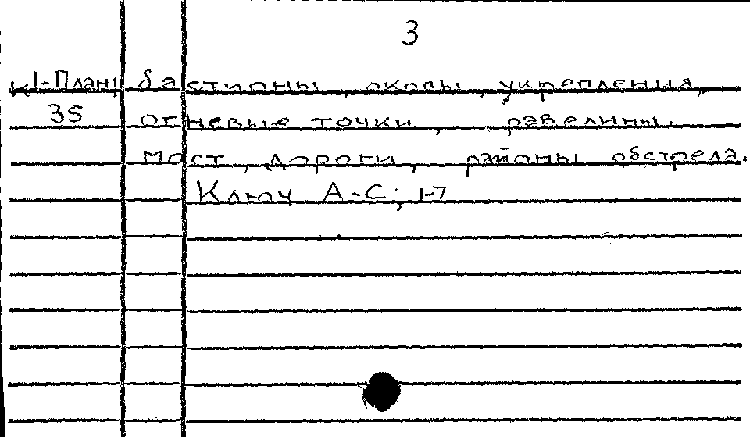 3
К1-План, бастионы, окопы, укрепления,
35 огневые точки, равелины.
мост, дороги, районы обстрела.
Ключ А-С; 1-7